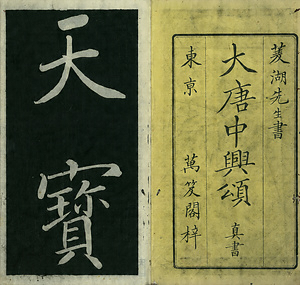 菱湖先生書
大唐中興頌
真書
東京 萬笈閣梓
天寶